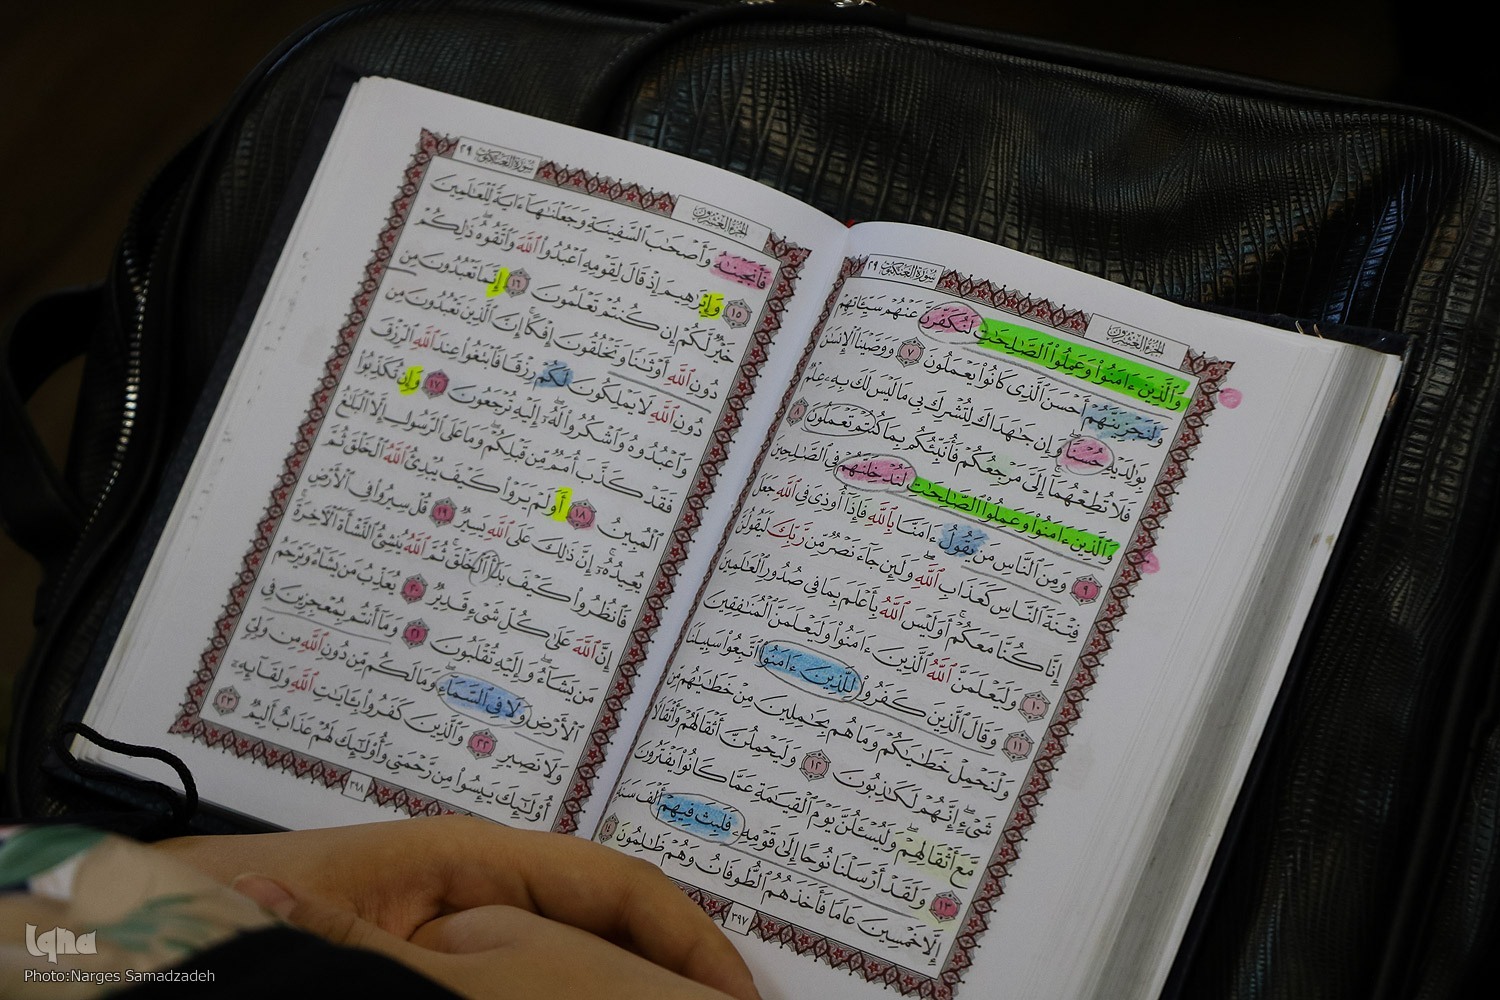 الجزء العشرون
سورة العنكبوت ٢٩
وَٱلَّذِينَ ءَامَنُوا۟ وَعَمِلُوا۟ ٱلصَّـٰلِحَـٰتِ لَنُكَفِّرَنَّ عَنْهُمْ سَيِّـَٔاتِهِمْ
وَلَنَجْزِيَنَّهُمْ أَحْسَنَ ٱلَّذِى كَانُوا۟ يَعْمَلُونَ ٧ وَوَصَّيْنَا ٱلْإِنسَـٰنَ
بِوَٰلِدَيْهِ حُسْنًا ۖ وَإِن جَـٰهَدَاكَ لِتُشْرِكَ بِى مَا لَيْسَ لَكَ بِهِۦ عِلْمٌ
فَلَا تُطِعْهُمَآ ۚ إِلَىَّ مَرْجِعُكُمْ فَأُنَبِّئُكُم بِمَا كُنتُمْ تَعْمَلُونَ ٨
وَٱلَّذِينَ ءَامَنُوا۟ وَعَمِلُوا۟ ٱلصَّـٰلِحَـٰتِ لَنُدْخِلَنَّهُمْ فِى ٱلصَّـٰلِحِينَ
٩ وَمِنَ ٱلنَّاسِ مَن يَقُولُ ءَامَنَّا بِٱللَّهِ فَإِذَآ أُوذِىَ فِى ٱللَّهِ جَعَلَ
فِتْنَةَ ٱلنَّاسِ كَعَذَابِ ٱللَّهِ ۖ وَلَئِن جَآءَ نَصْرٌ مِّن رَّبِّكَ لَيَقُولُنَّ
إِنَّا كُنَّا مَعَكُمْ ۚ أَوَلَيْسَ ٱللَّهُ بِأَعْلَمَ بِمَا فِى صُدُورِ ٱلْعَـٰلَمِينَ
١٠ وَلَيَعْلَمَنَّ ٱللَّهُ ٱلَّذِينَ ءَامَنُوا۟ وَلَيَعْلَمَنَّ ٱلْمُنَـٰفِقِينَ
١١ وَقَالَ ٱلَّذِينَ كَفَرُوا۟ لِلَّذِينَ ءَامَنُوا۟ ٱتَّبِعُوا۟ سَبِيلَنَا
وَلْنَحْمِلْ خَطَـٰيَـٰكُمْ وَمَا هُم بِحَـٰمِلِينَ مِنْ خَطَـٰيَـٰهُم مِّن
شَىْءٍ ۖ إِنَّهُمْ لَكَـٰذِبُونَ ١٢ وَلَيَحْمِلُنَّ أَثْقَالَهُمْ وَأَثْقَالًا
مَّعَ أَثْقَالِهِمْ ۖ وَلَيُسْـَٔلُنَّ يَوْمَ ٱلْقِيَـٰمَةِ عَمَّا كَانُوا۟ يَفْتَرُونَ
١٣ وَلَقَدْ أَرْسَلْنَا نُوحًا إِلَىٰ قَوْمِهِۦ فَلَبِثَ فِيهِمْ أَلْفَ سَنَةٍ
إِلَّا خَمْسِينَ عَامًا فَأَخَذَهُمُ ٱلطُّوفَانُ وَهُمْ ظَـٰلِمُونَ ١٤
٣٩٧
الجزء العشرون
سورة العنكبوت ٢٩
فَأَنجَيْنَـٰهُ وَأَصْحَـٰبَ ٱلسَّفِينَةِ وَجَعَلْنَـٰهَآ ءَايَةً لِّلْعَـٰلَمِينَ
١٥ وَإِبْرَٰهِيمَ إِذْ قَالَ لِقَوْمِهِ ٱعْبُدُوا۟ ٱللَّهَ وَٱتَّقُوهُ ۖ ذَٰلِكُمْ
خَيْرٌ لَّكُمْ إِن كُنتُمْ تَعْلَمُونَ ١٦ إِنَّمَا تَعْبُدُونَ مِن
دُونِ ٱللَّهِ أَوْثَـٰنًا وَتَخْلُقُونَ إِفْكًا ۚ إِنَّ ٱلَّذِينَ تَعْبُدُونَ مِن
دُونِ ٱللَّهِ لَا يَمْلِكُونَ لَكُمْ رِزْقًا فَٱبْتَغُوا۟ عِندَ ٱللَّهِ ٱلرِّزْقَ
وَٱعْبُدُوهُ وَٱشْكُرُوا۟ لَهُۥٓ ۖ إِلَيْهِ تُرْجَعُونَ ١٧ وَإِن تُكَذِّبُوا۟
فَقَدْ كَذَّبَ أُمَمٌ مِّن قَبْلِكُمْ ۖ وَمَا عَلَى ٱلرَّسُولِ إِلَّا ٱلْبَلَـٰغُ
ٱلْمُبِينُ ١٨ أَوَلَمْ يَرَوْا۟ كَيْفَ يُبْدِئُ ٱللَّهُ ٱلْخَلْقَ ثُمَّ
يُعِيدُهُۥٓ ۚ إِنَّ ذَٰلِكَ عَلَى ٱللَّهِ يَسِيرٌ ١٩ قُلْ سِيرُوا۟ فِى ٱلْأَرْضِ
فَٱنظُرُوا۟ كَيْفَ بَدَأَ ٱلْخَلْقَ ۚ ثُمَّ ٱللَّهُ يُنشِئُ ٱلنَّشْأَةَ ٱلْـَٔاخِرَةَ ۚ
إِنَّ ٱللَّهَ عَلَىٰ كُلِّ شَىْءٍ قَدِيرٌ ٢٠ يُعَذِّبُ مَن يَشَآءُ وَيَرْحَمُ
مَن يَشَآءُ ۖ وَإِلَيْهِ تُقْلَبُونَ ٢١ وَمَآ أَنتُم بِمُعْجِزِينَ فِى
ٱلْأَرْضِ وَلَا فِى ٱلسَّمَآءِ ۖ وَمَا لَكُم مِّن دُونِ ٱللَّهِ مِن وَلِىٍّ
وَلَا نَصِيرٍ ٢٢ وَٱلَّذِينَ كَفَرُوا۟ بِـَٔايَـٰتِ ٱللَّهِ وَلِقَآئِهِۦٓ
أُو۟لَـٰٓئِكَ يَئِسُوا۟ مِن رَّحْمَتِى وَأُو۟لَـٰٓئِكَ لَهُمْ عَذَابٌ أَلِيمٌ ٢٣
٣٩٨
Iqna
Photo:Narges Samadzadeh